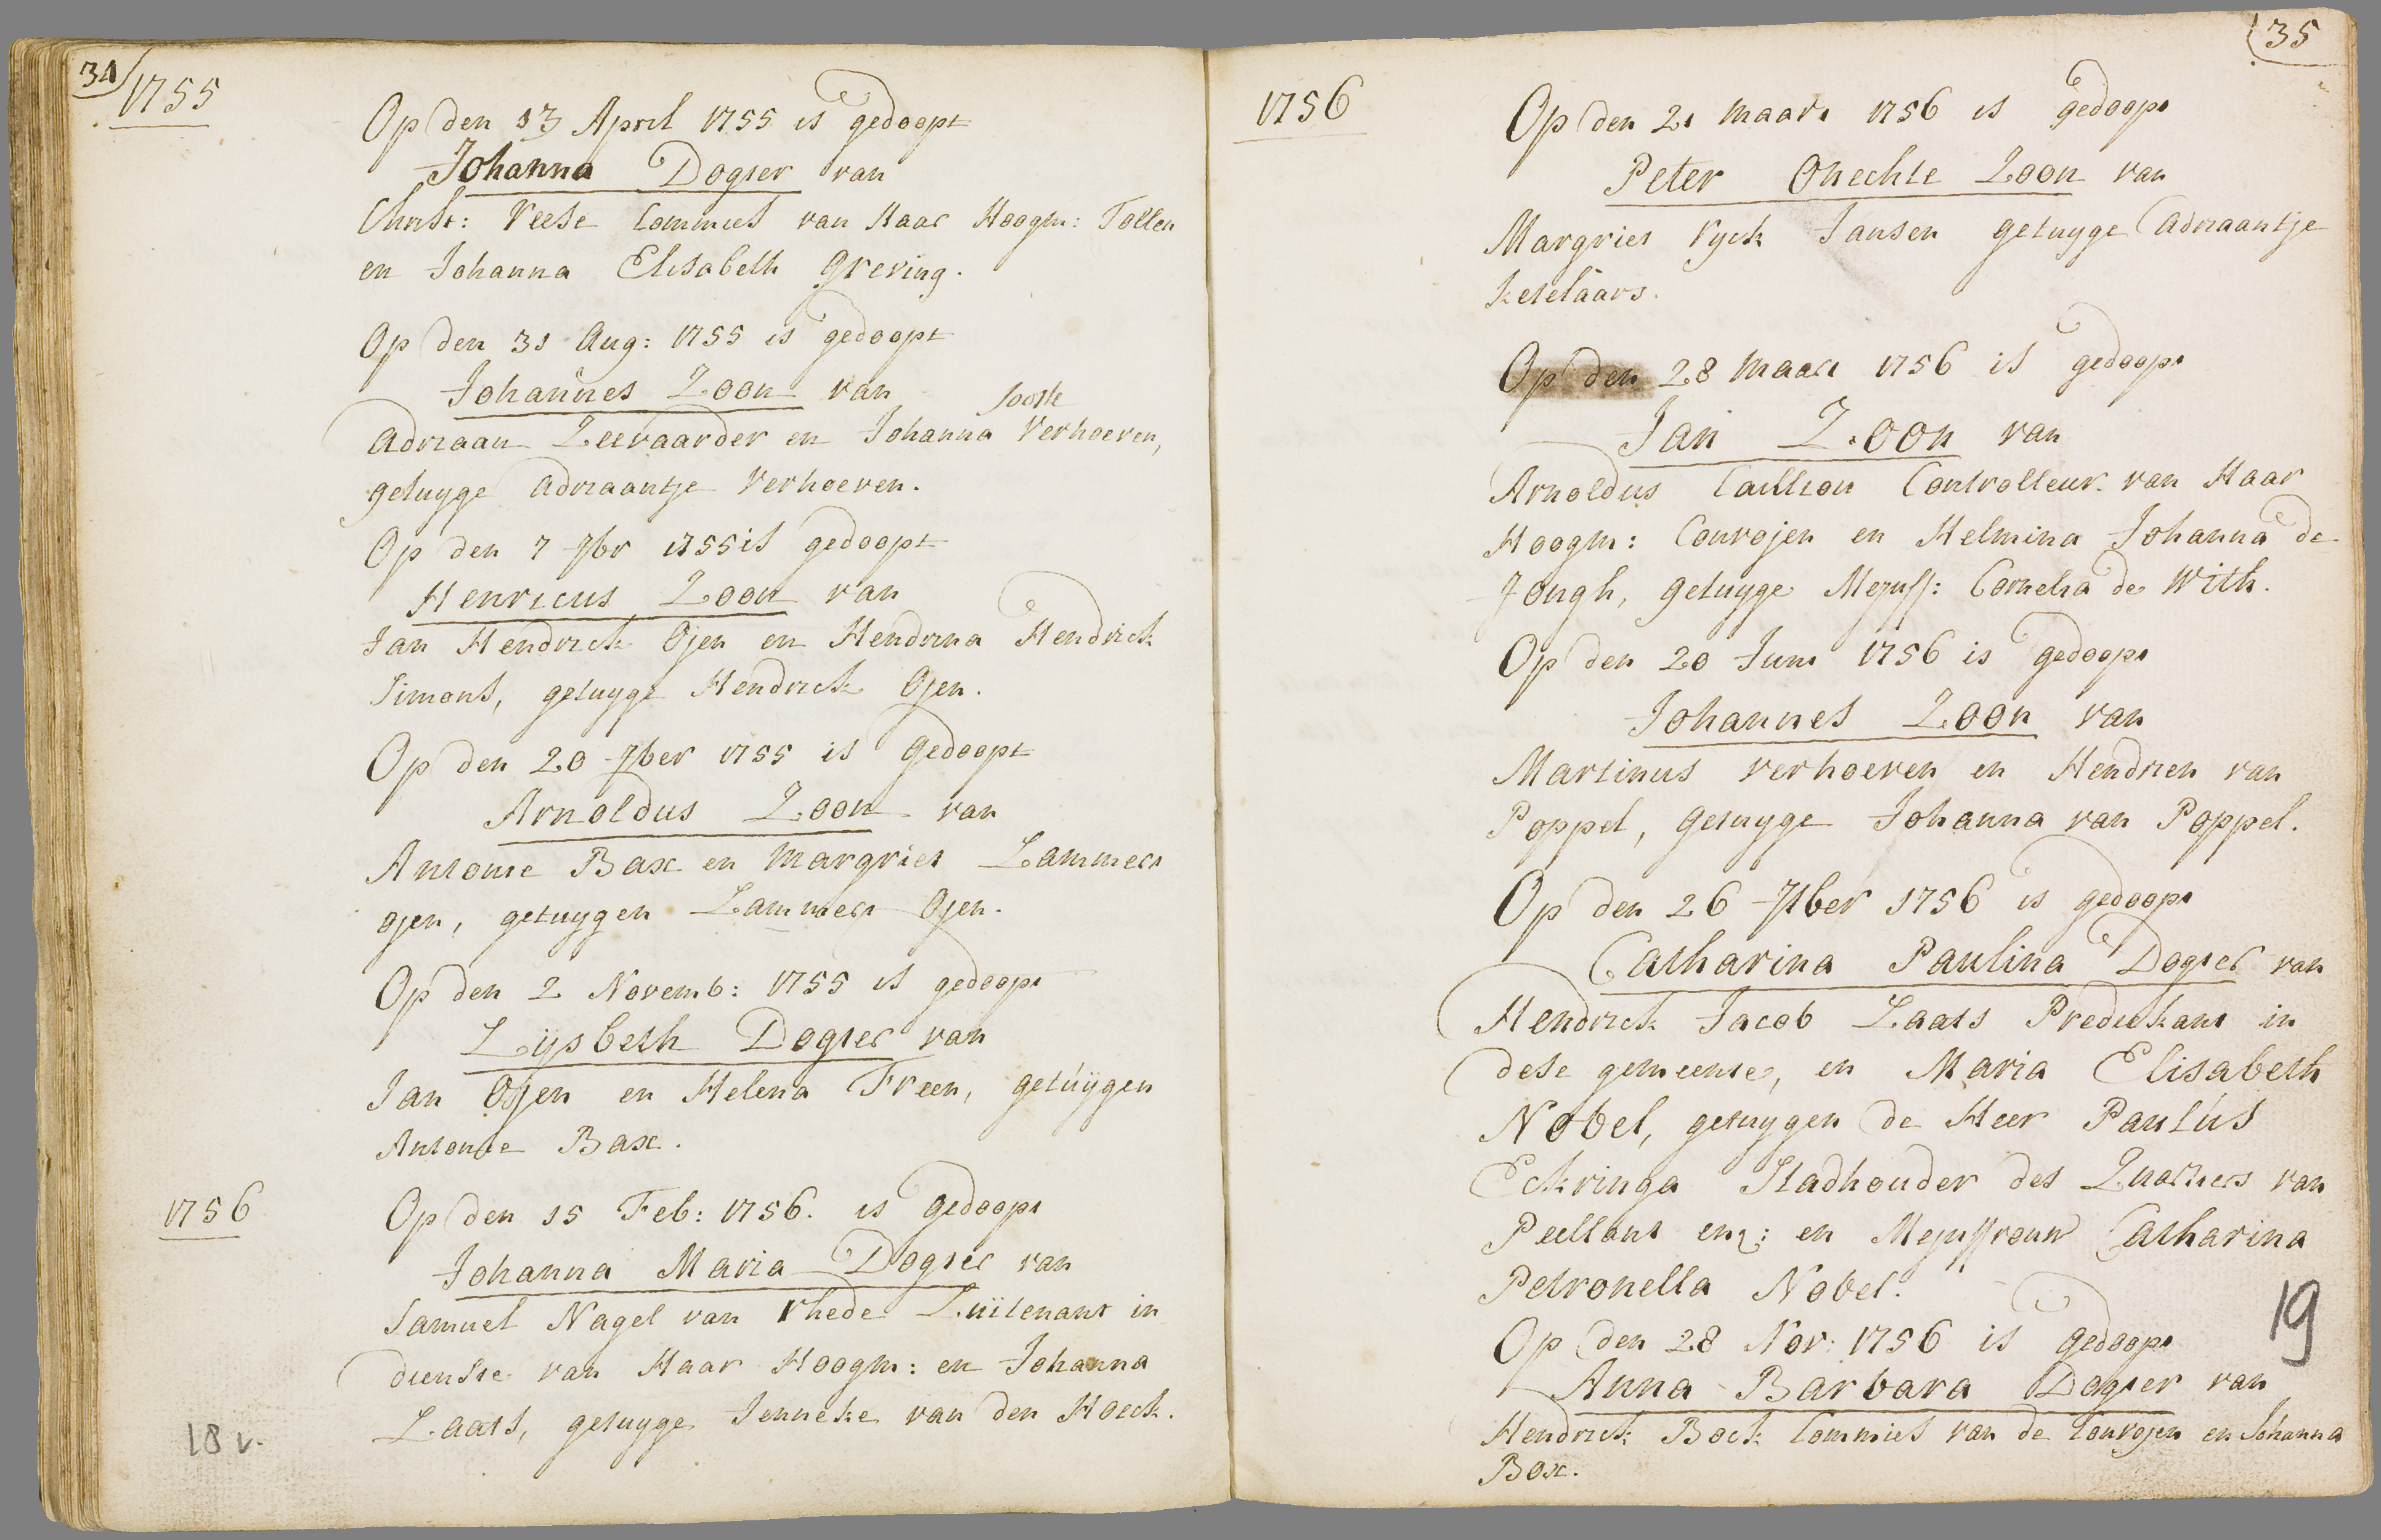 34
1755
Op den 13 April 1755 is gedoopt
Johanna Dogter van
Christ: Veese Commies van Haar Hoogm: Tollen
en Johanna Elisabeth Grering.
Op den 31 Aug: 1755 is gedoopt
Johannes Zoon van
Jooste
Adriaan Zeevaarder en Johanna Verhoeven,
getuyge Adriaantje Verhoeven.
Op den 7 7br 1755 is gedoopt
Henricus Zoon van
Jan Hendrick Ojen en Hendrina Hendrick
Simons, getuyge Hendrick Ojen.
Op den 20 7ber 1755 is gedoopt
Arnoldus Zoon van
Antonie Bax en Margriet Lammert
Ojen, getuygen Lammert Ojen.
Op den 2 Novemb: 1755 is gedoopt
Lijsbeth Dogter van
Jan Ojen en Helena Freen, getuygen
Antonie Bax.
1756
Op den 15 Feb: 1756. is gedoopt
Johanna Maria Dogter van
Samuel Nagel van Rhede Luitenant in
dienste van Haar Hoogm: en Johanna
Laats, getuyge Jenneke van den Hoeck.
18 v.
35
1756
Op den 21 Maart 1756 is gedoopt
Peter Onechte Zoon van
Margriet Ryck Jansen getuyge Adriaantje
Ketelaars.
Op den 28 Maart 1756 is gedoopt
Jan Zoon van
Arnoldus Caillion Controlleur van Haar
Hoogm: Convojen en Helmina Johanna de
Jongh, getuyge Mejuff: Cornelia de With.
Op den 20 Juni 1756 is gedoopt
Johannes Zoon van
Martinus Verhoeven en Hendrien van
Poppel, getuyge Johanna van Poppel.
Op den 26 7tber 1756 is gedoopt
Catharina Paulina Dogter van
Hendrick Jacob Laats Predickant in
dese gemeente, en Maria Elisabeth
Nobel, getuygen de Heer Paulus
Eckringa Stadhouder des Quartiers van
Peellant enz: en Mejuffrouw Catharina
Petronella Nobel.
Op den 28 Nov: 1756 is gedoopt
Anna Barbara Dogter van
Hendrick Bock Commies van de Convojen en Johanna
Box.
19